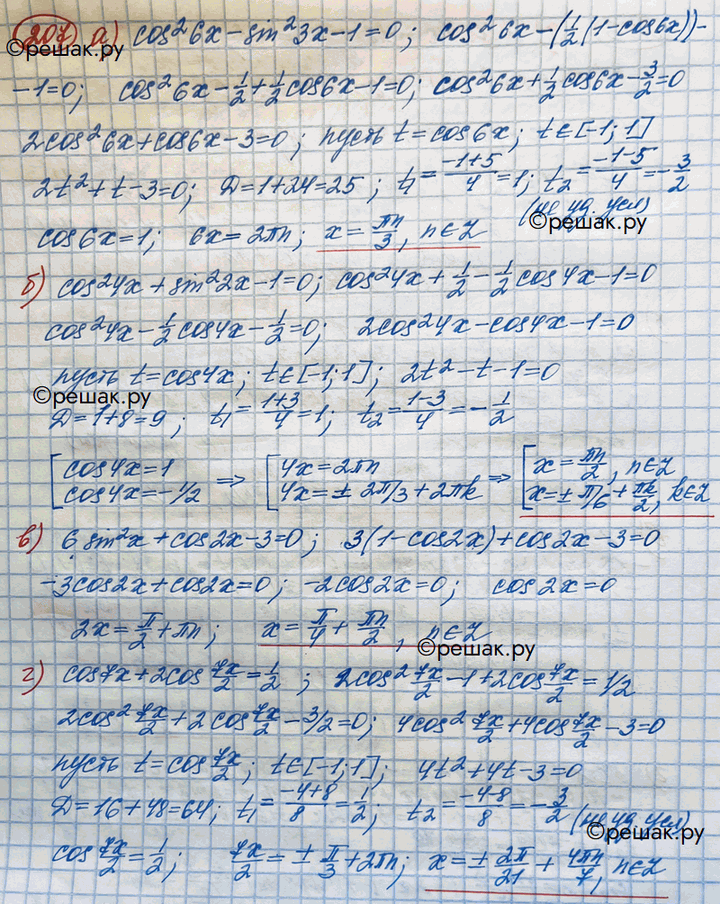 207) а) cos²6x - sin²3x - 1 = 0; cos²6x - (½(1 - cos6x)) -
©решак.ру
- 1 = 0; cos²6x - ½ + ½cos6x - 1 = 0; cos²6x + ½cos6x - 3/2 = 0
2cos²6x + cos6x - 3 = 0; пусть t = cos6x; t ∈ [-1; 1]
2t² + t - 3 = 0; D = 1 + 24 = 25; t₁ = (-1+5)/4 = 1; t₂ = (-1-5)/4 = -3/2
(не уд. усл)
©решак.ру
cos6x = 1; 6x = 2πn; x = πn/3, n ∈ Z
б) cos²4x + sin²2x - 1 = 0; cos²4x + ½ - ½cos4x - 1 = 0
cos²4x - ½cos4x - ½ = 0; 2cos²4x - cos4x - 1 = 0
пусть t = cos4x; t ∈ [-1; 1]; 2t² - t - 1 = 0
©решак.ру
D = 1 + 8 = 9; t₁ = (1+3)/4 = 1; t₂ = (1-3)/4 = -½
[cos4x = 1 ⇒ [4x = 2πn ⇒ [x = πn/2, n ∈ Z
cos4x = -1/2 4x = ± 2π/3 + 2πk x = ± π/6 + πk/2, k ∈ Z
в) 6 sin²x + cos2x - 3 = 0; 3(1 - cos2x) + cos2x - 3 = 0
-3cos2x + cos2x = 0; -2cos2x = 0; cos2x = 0
2x = π/2 + πn; x = π/4 + πn/2, n ∈ Z
©решак.ру
г) cos7x + 2cos 7x/2 = ½; 2cos² 7x/2 - 1 + 2cos 7x/2 = 1/2
2cos² 7x/2 + 2cos 7x/2 - 3/2 = 0; 4cos² 7x/2 + 4cos 7x/2 - 3 = 0
пусть t = cos 7x/2; t ∈ [-1; 1]; 4t² + 4t - 3 = 0
D = 16 + 48 = 64; t₁ = (-4+8)/8 = ½; t₂ = (-4-8)/8 = -3/2 (не уд. усл)
©решак.ру
cos 7x/2 = ½; 7x/2 = ± π/3 + 2πn; x = ± 2π/21 + 4πn/7, n ∈ Z